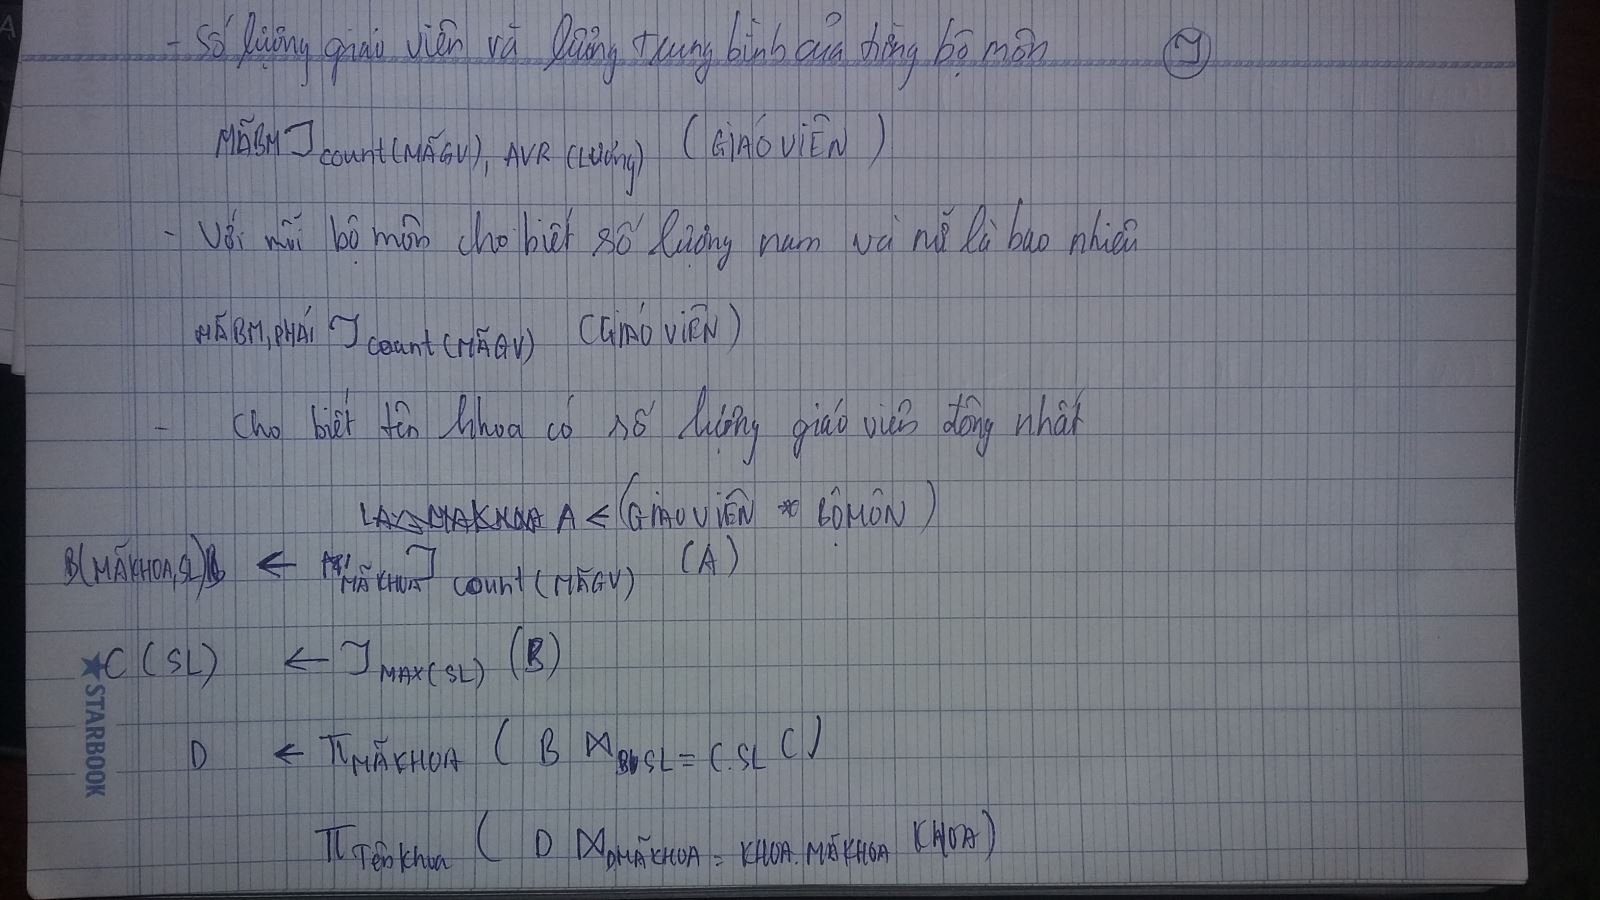 - Số lượng giáo viên và lương trung bình của từng bộ môn
MÃBM ℑ count(MÃGV), AVR (Lương) (GIÁO VIÊN)
- Với mỗi bộ môn cho biết số lượng nam và nữ là bao nhiêu
MÃBM, PHÁI ℑ count(MÃGV) (GIÁO VIÊN)
- Cho biết tên khoa có số lượng giáo viên đông nhất
A ← (GIÁO VIÊN * BỘ MÔN)
B(MÃKHOA, SL) ← MÃKHOA ℑ count(MÃGV) (A)
C (SL) ← ℑ MAX(SL) (B)
D ← π MÃKHOA ( B ⋈ B.SL = C.SL C)
π Tênkhoa ( D ⋈ D.MÃKHOA = KHOA.MÃKHOA KHOA)
★ STARBOOK